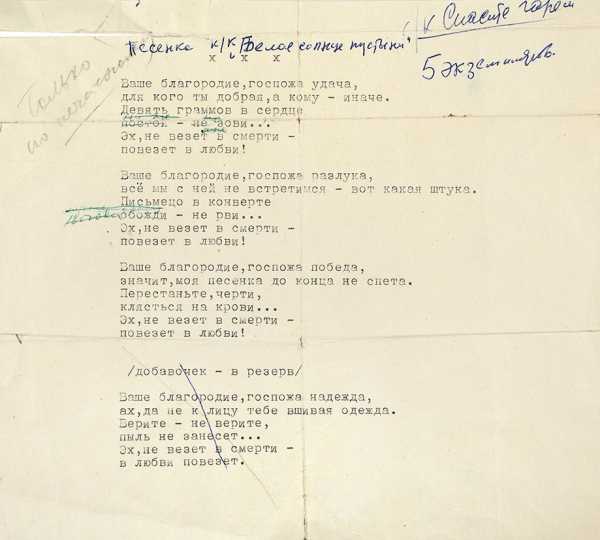 к "Спасите гарем"
Песенка к/к "Белое солнце пустыни"
5 экземпляров.
Только
х х х
Ваше благородие,госпожа удача,
для кого ты добрая,а кому - иначе.
Девять граммов в сердце
постой - не зови...
Эх,не везет в смерти -
повезет в любви!
Ваше благородие,госпожа разлука,
всё мы с ней не встретимся - вот какая штука.
Письмецо в конверте
обожди - не рви...
Эх,не везет в смерти -
повезет в любви!
Ваше благородие,госпожа победа,
значит,моя песенка до конца не спета.
Перестаньте,черти,
клясться на крови...
Эх,не везет в смерти -
повезет в любви!
/добавочек - в резерв/
Ваше благородие,госпожа надежда,
ах,да не к лицу тебе вшивая одежда.
Верите - не верите,
пыль не занесет...
Эх,не везет в смерти -
в любви повезет.